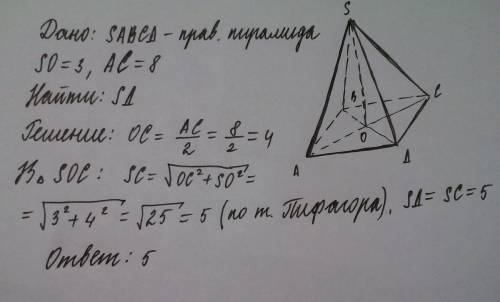 Дано: SABCD - прав. пирамида
SO = 3, AC = 8
Найти: SD
Решение: OC = AC/2 = 8/2 = 4
Из SOC: SC = √(OC² + SO²) =
= √(3² + 4²) = √25 = 5 (по т. Пифагора), SD = SC = 5
Ответ: 5
S
B
C
O
A
D